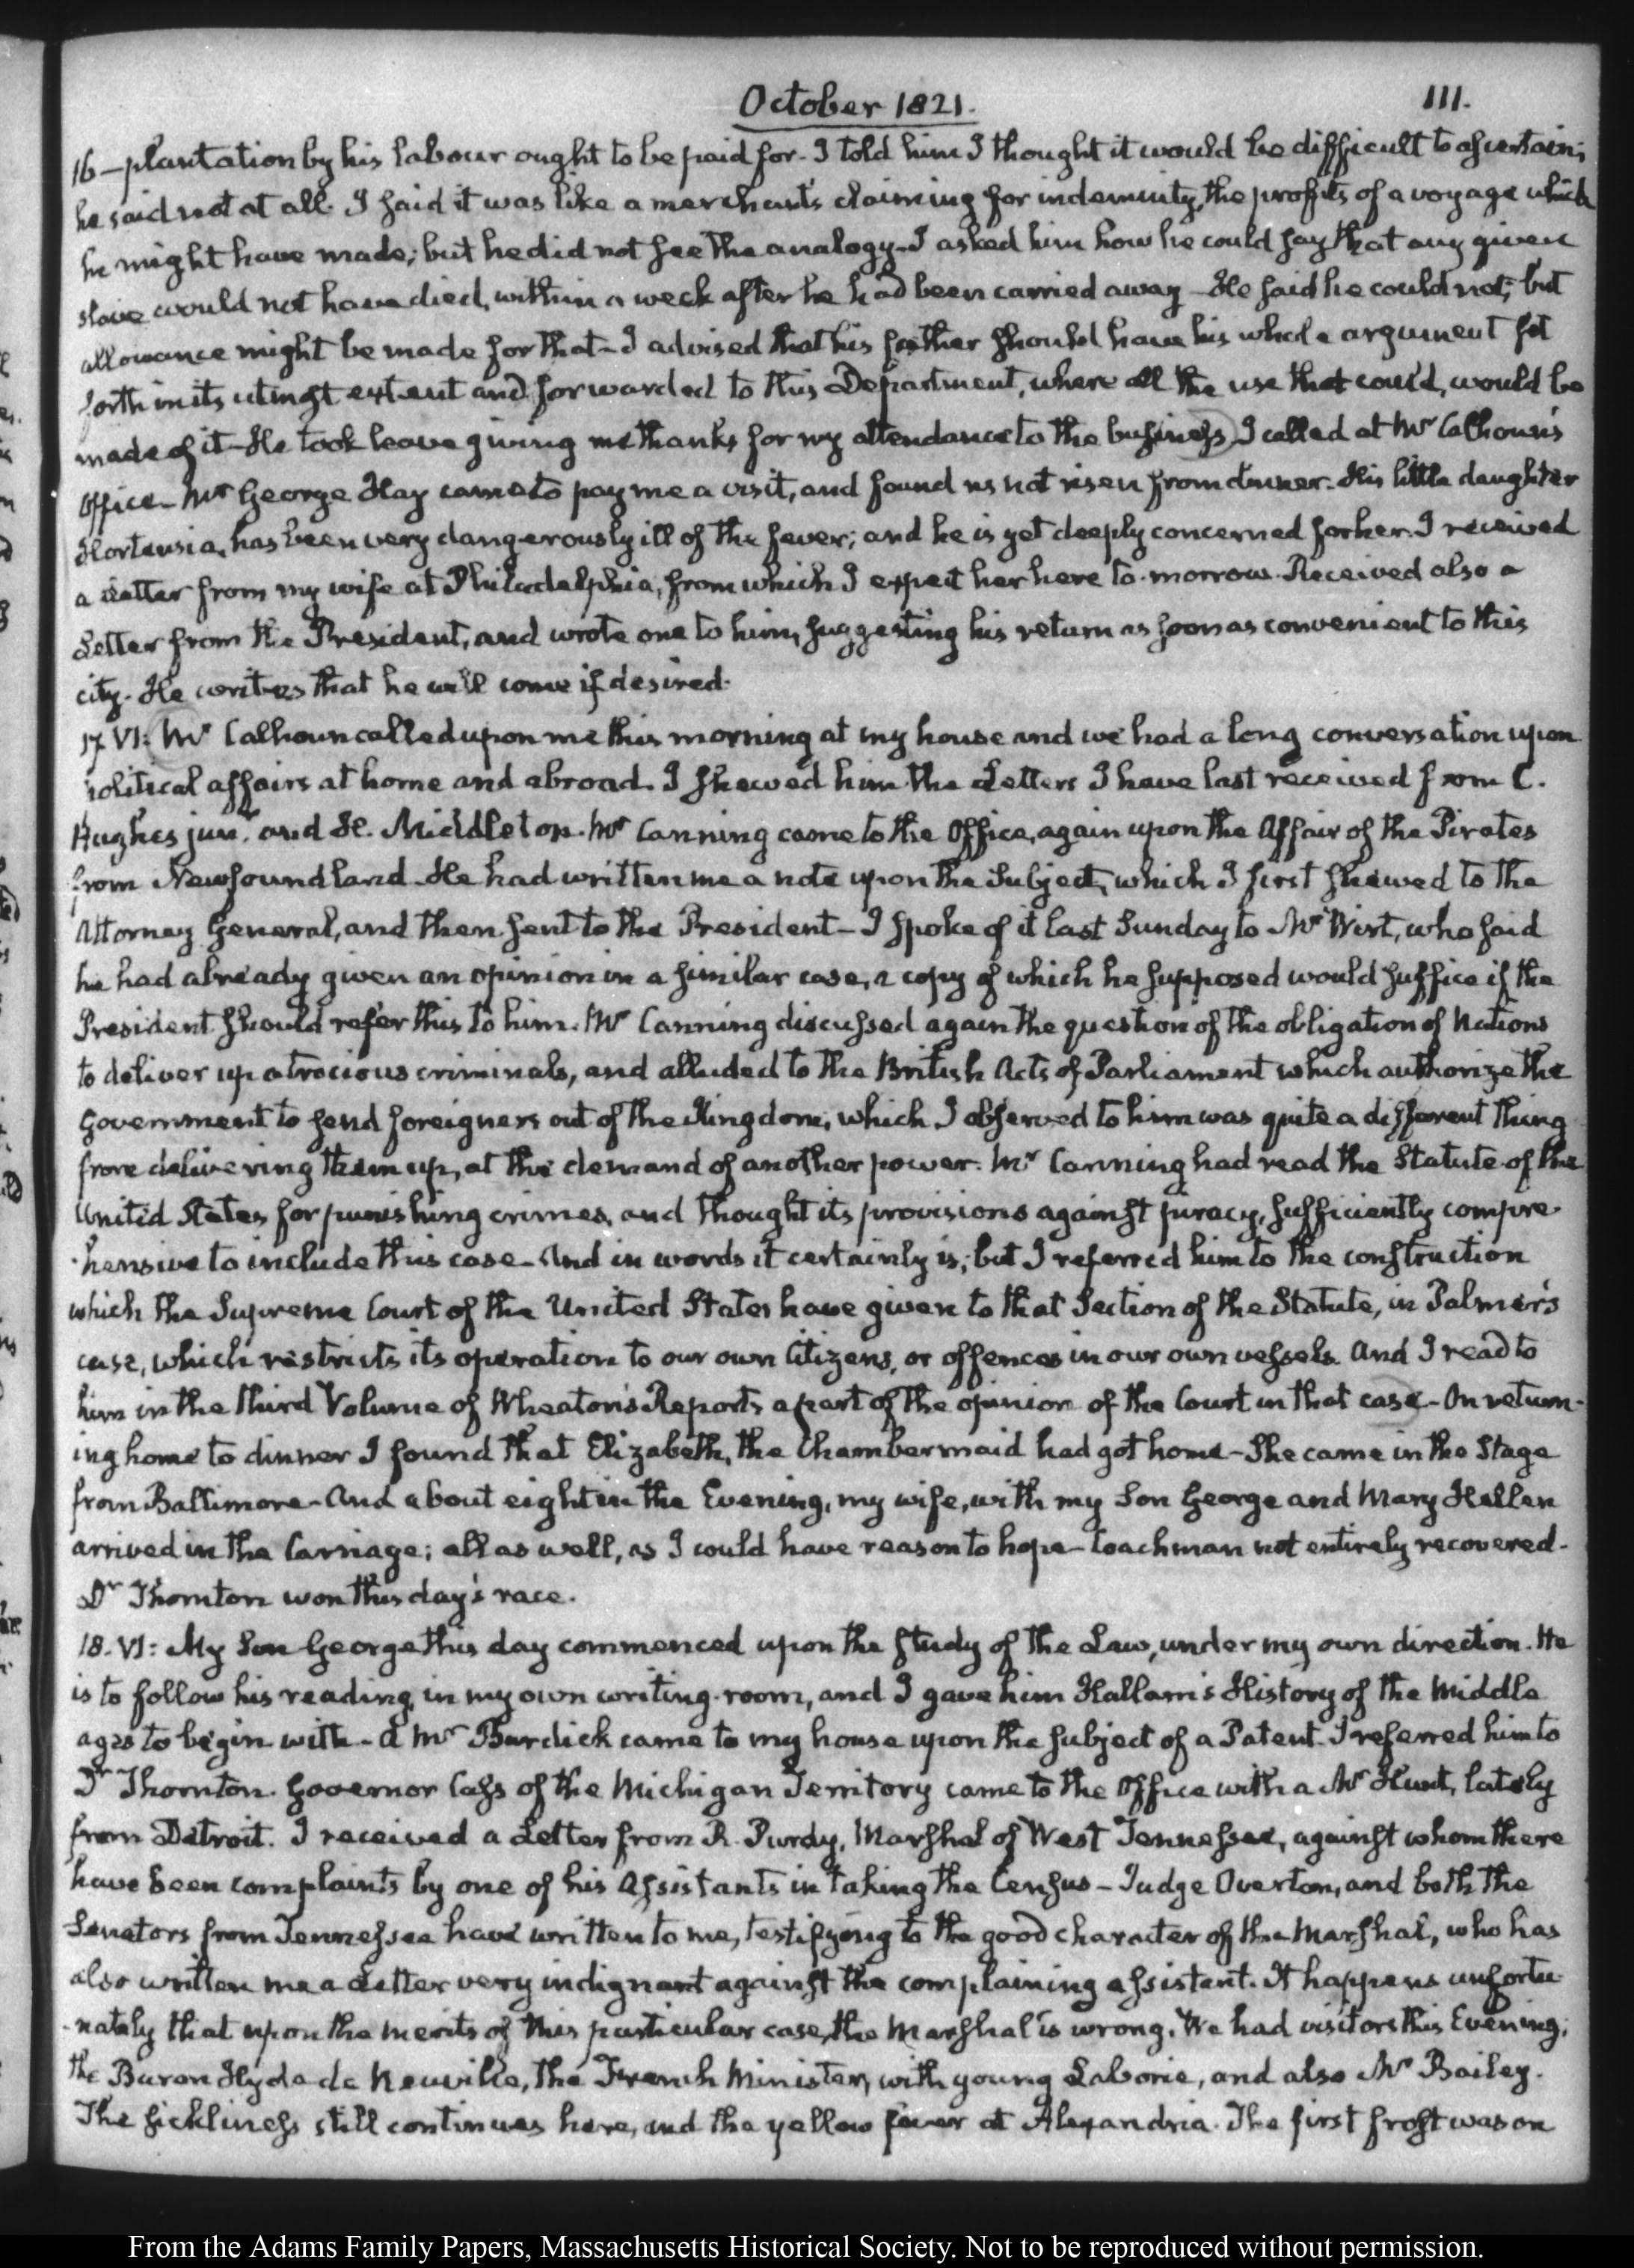 October 1821.
111.
16 — plantation by his labour ought to be paid for — I told him I thought it would be difficult to ascertain;
he said not at all. I said it was like a merchant's claiming for indemnity, the profits of a voyage which
he might have made; but he did not see the analogy — I asked him how he could say that any given
slave would not have died, within a week after he had been carried away — He said he could not; but
allowance might be made for that — I advised that his father should have his whole argument set
forth in its utmost extent and forwarded to this Department, where all the use that could, would be
made of it — He took leave giving me thanks for my attendance to the business. I called at Mr Calhoun's
Office — Mr George Hay came to pay me a visit, and found us not risen from dinner. His little daughter
Hortensia, has been very dangerously ill of the fever; and he is yet deeply concerned for her. I received
a Letter from my wife at Philadelphia, from which I expect her here to-morrow. Received also a
Letter from the President, and wrote one to him, suggesting his return as soon as convenient to this
city. He writes that he will come if desired.
17. VI: Mr Calhoun called upon me this morning at my house and we had a long conversation upon
political affairs at home and abroad. I shewed him the Letters I have last received from C.
Hughes junr. and H. Middleton. Mr Canning came to the Office, again upon the Affair of the Pirates
from Newfoundland. He had written me a note upon the Subject, which I first shewed to the
Attorney General, and then sent to the President — I spoke of it last Sunday to Mr Wirt, who said
he had already given an opinion in a similar case, a copy of which he supposed would suffice if the
President should refer this to him. Mr Canning discussed again the question of the obligation of Nations
to deliver up atrocious criminals, and alluded to the British Acts of Parliament which authorize the
Government to send foreigners out of the Kingdom, which I observed to him was quite a different thing
from delivering them up, at the demand of another power. Mr Canning had read the Statute of the
United States for punishing crimes, and thought its provisions against piracy, sufficiently compre-
-hensive to include this case — And in words it certainly is; but I referred him to the construction
which the Supreme Court of the United States have given to that Section of the Statute, in Palmer's
case, which restricts its operation to our own Citizens, or offences in our own vessels. And I read to
him in the third Volume of Wheaton's Reports a part of the opinion of the Court in that case — On return-
ing home to dinner I found that Elizabeth, the Chambermaid had got home — She came in the Stage
from Baltimore — And about eight in the Evening, my wife, with my Son George and Mary Hellen
arrived in the Carriage; all as well, as I could have reason to hope — Coachman not entirely recovered.
Dr Thornton won this day's race.
18. VI: My Son George this day commenced upon the study of the Law, under my own direction. He
is to follow his reading, in my own writing-room, and I gave him Hallam's History of the Middle
ages to begin with — A Mr Burdick came to my house upon the subject of a Patent. I referred him to
Dr Thornton. Governor Cass of the Michigan Territory came to the Office with a Mr Hunt, lately
from Detroit. I received a Letter from R. Purdy, Marshal of West Tennessee, against whom there
have been complaints by one of his Assistants in taking the Census — Judge Overton, and both the
Senators from Tennessee have written to me, testifying to the good character of the Marshal, who has
also written me a Letter very indignant against the complaining assistant. It happens unfortu-
-nately that upon the merits of this particular case, the Marshal is wrong. We had visitors this Evening;
the Baron Hyde de Neuville, the French Minister, with young Laborie, and also Mr Bailey.
The sickliness still continues here, and the yellow fever at Alexandria. The first frost was on
From the Adams Family Papers, Massachusetts Historical Society. Not to be reproduced without permission.